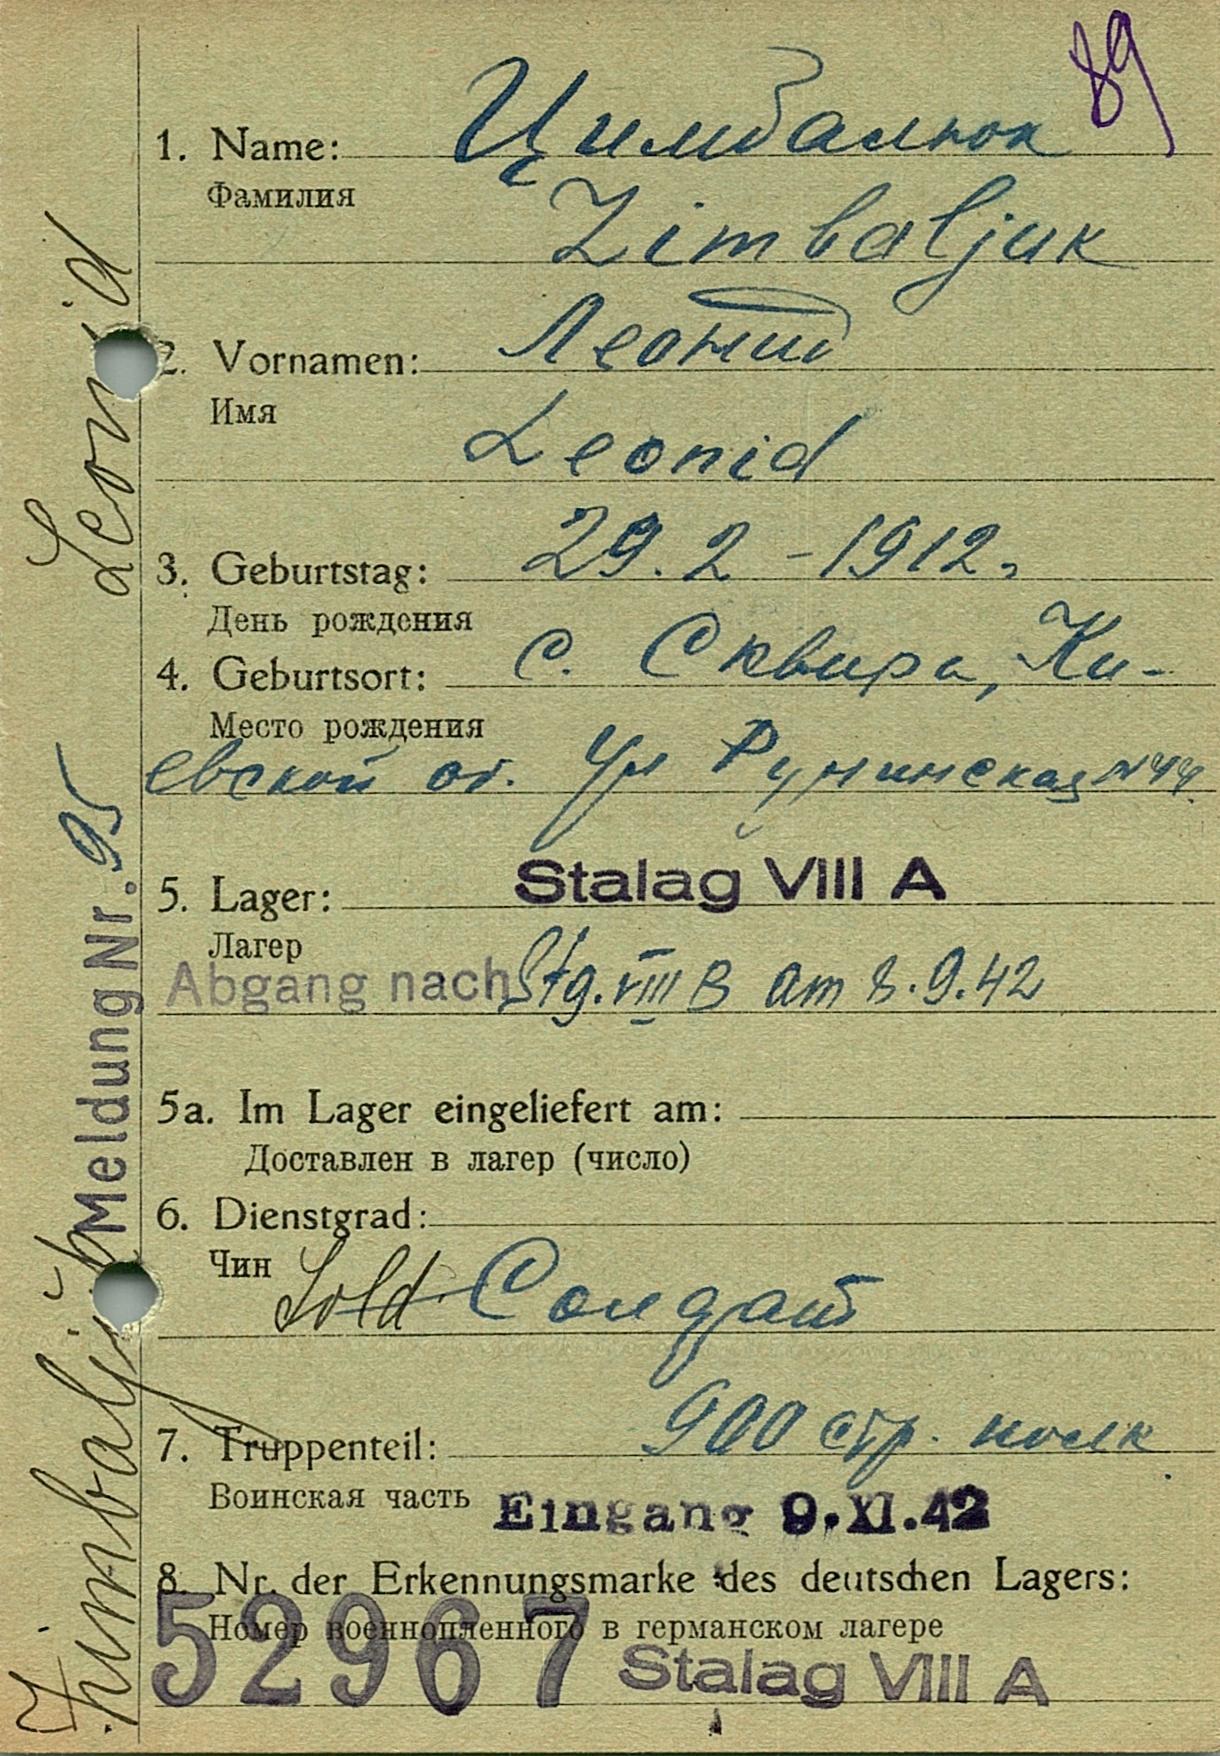 89
1. Name: Цимбалюк
Фамилия
Zimbaljuk
2. Vornamen: Леонид
Имя
Leonid
3. Geburtstag: 29.2-1912.
День рождения
4. Geburtsort: с. Сквира, Ки-
Место рождения
евской об. ул Румынская №44
5. Lager: Stalag VIII A
Лагер
Abgang nach Stg. VIII B am 8.9.42
5a. Im Lager eingeliefert am:
Доставлен в лагер (число)
6. Dienstgrad:
Чин Sold. Солдат
7. Truppenteil: 900 стр. полк
Воинская часть Eingang 9.XI.42
8. Nr. der Erkennungsmarke des deutschen Lagers:
Номер военнопленного в германском лагере
52967 Stalag VIII A
Meldung Nr. 95
Leonid